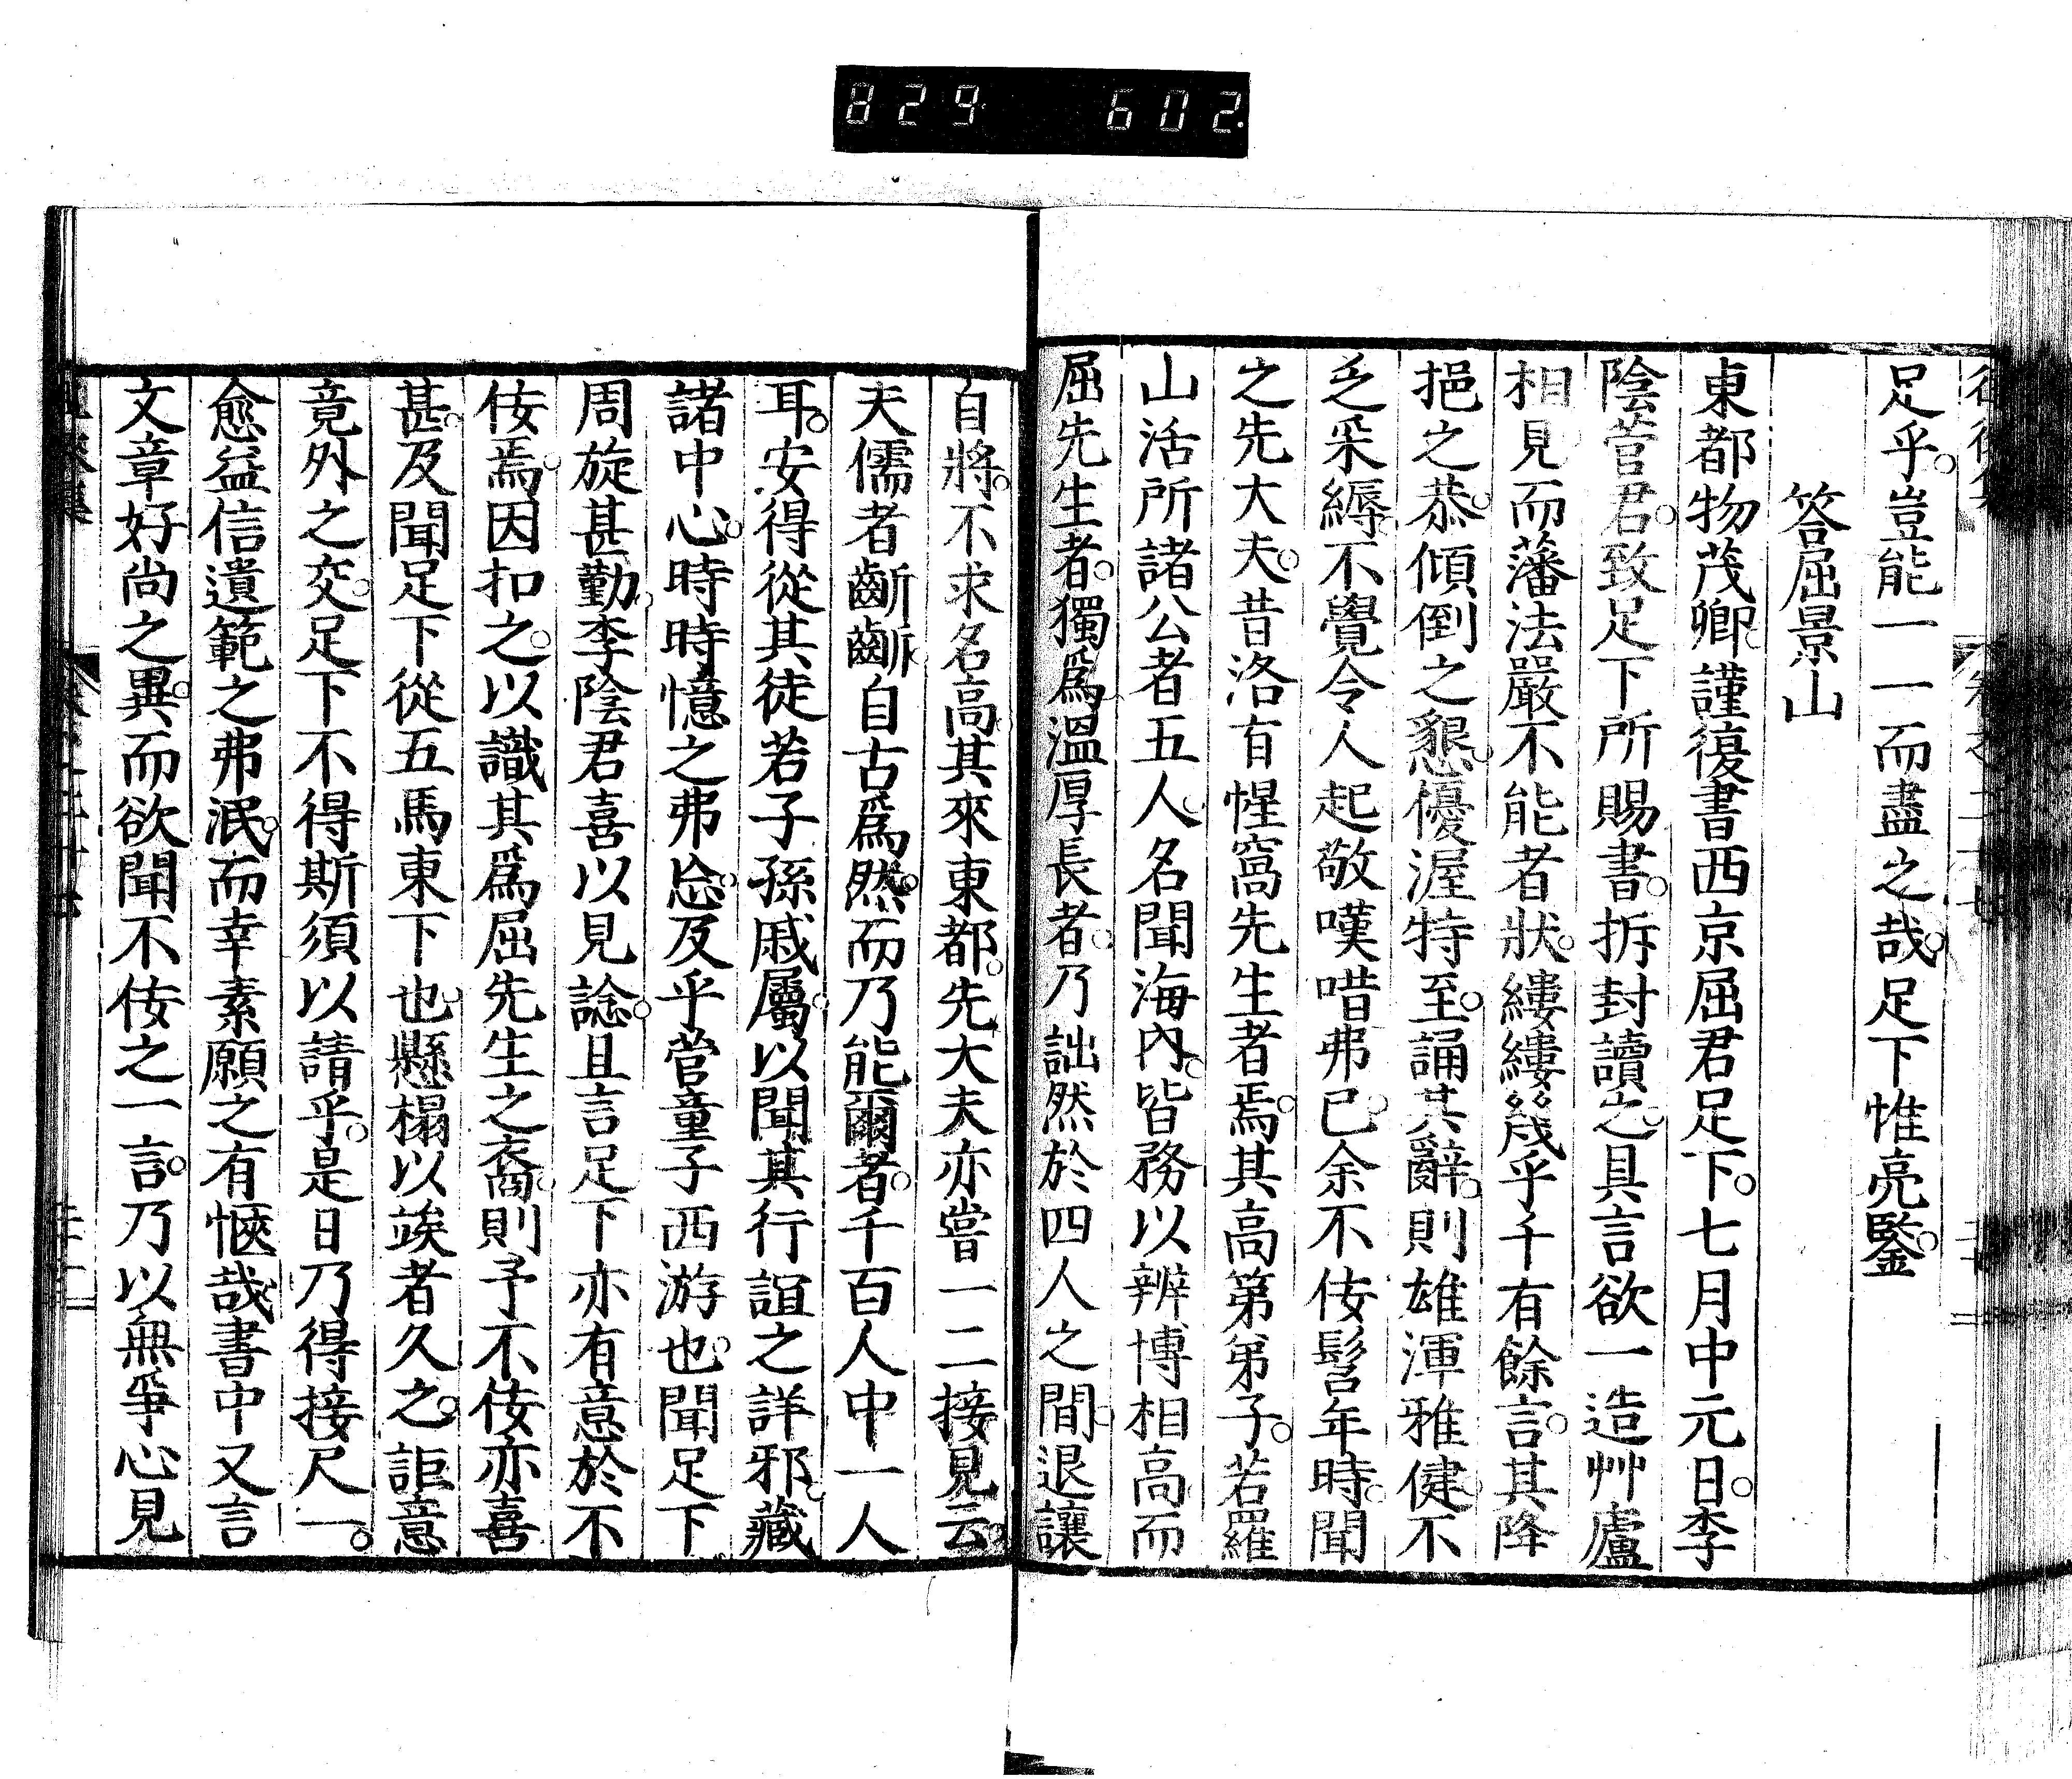 829 602
足乎。豈能一一而盡之哉。足下惟亮鑒。
答屈景山
東都物茂卿。謹復書西京屈君足下。七月中元日。李
陰菅君。致足下所賜書。拆封讀之。具言欲一造艸廬
相見。而藩法嚴不能者狀。縷縷幾乎千有餘言。其降
挹之恭。傾倒之懇。優渥特至。誦其辭。則雄渾雅健。不
乏采縟。不覺令人起敬嘆唶弗已。余不佞髫年時。聞
之先大夫。昔洛有惺窩先生者焉。其高第弟子。若羅
山活所諸公者五人。名聞海內。皆務以辨博相高。而
屈先生者。獨爲溫厚長者。乃詘然於四人之間。退讓
自將。不求名高。其來東都。先大夫亦嘗一二接見云。
夫儒者齗齗。自古爲然。而乃能爾者。千百人中一人
耳。安得從其徒若子孫戚屬。以聞其行誼之詳邪。藏
諸中心。時時憶之弗忘。及乎菅童子西游也。聞足下
周旋甚勤。李陰君喜以見諗。且言足下亦有意於不
佞焉。因扣之。以識其爲屈先生之裔。則予不佞亦喜
甚。及聞足下從五馬東下也。懸榻以竢者久之。詎意
竟外之交。足下不得斯須以請乎。是日乃得接尺一。
愈益信遺範之弗泯。而幸素願之有愜哉。書中又言
文章好尚之異。而欲聞不佞之一言。乃以無爭心見